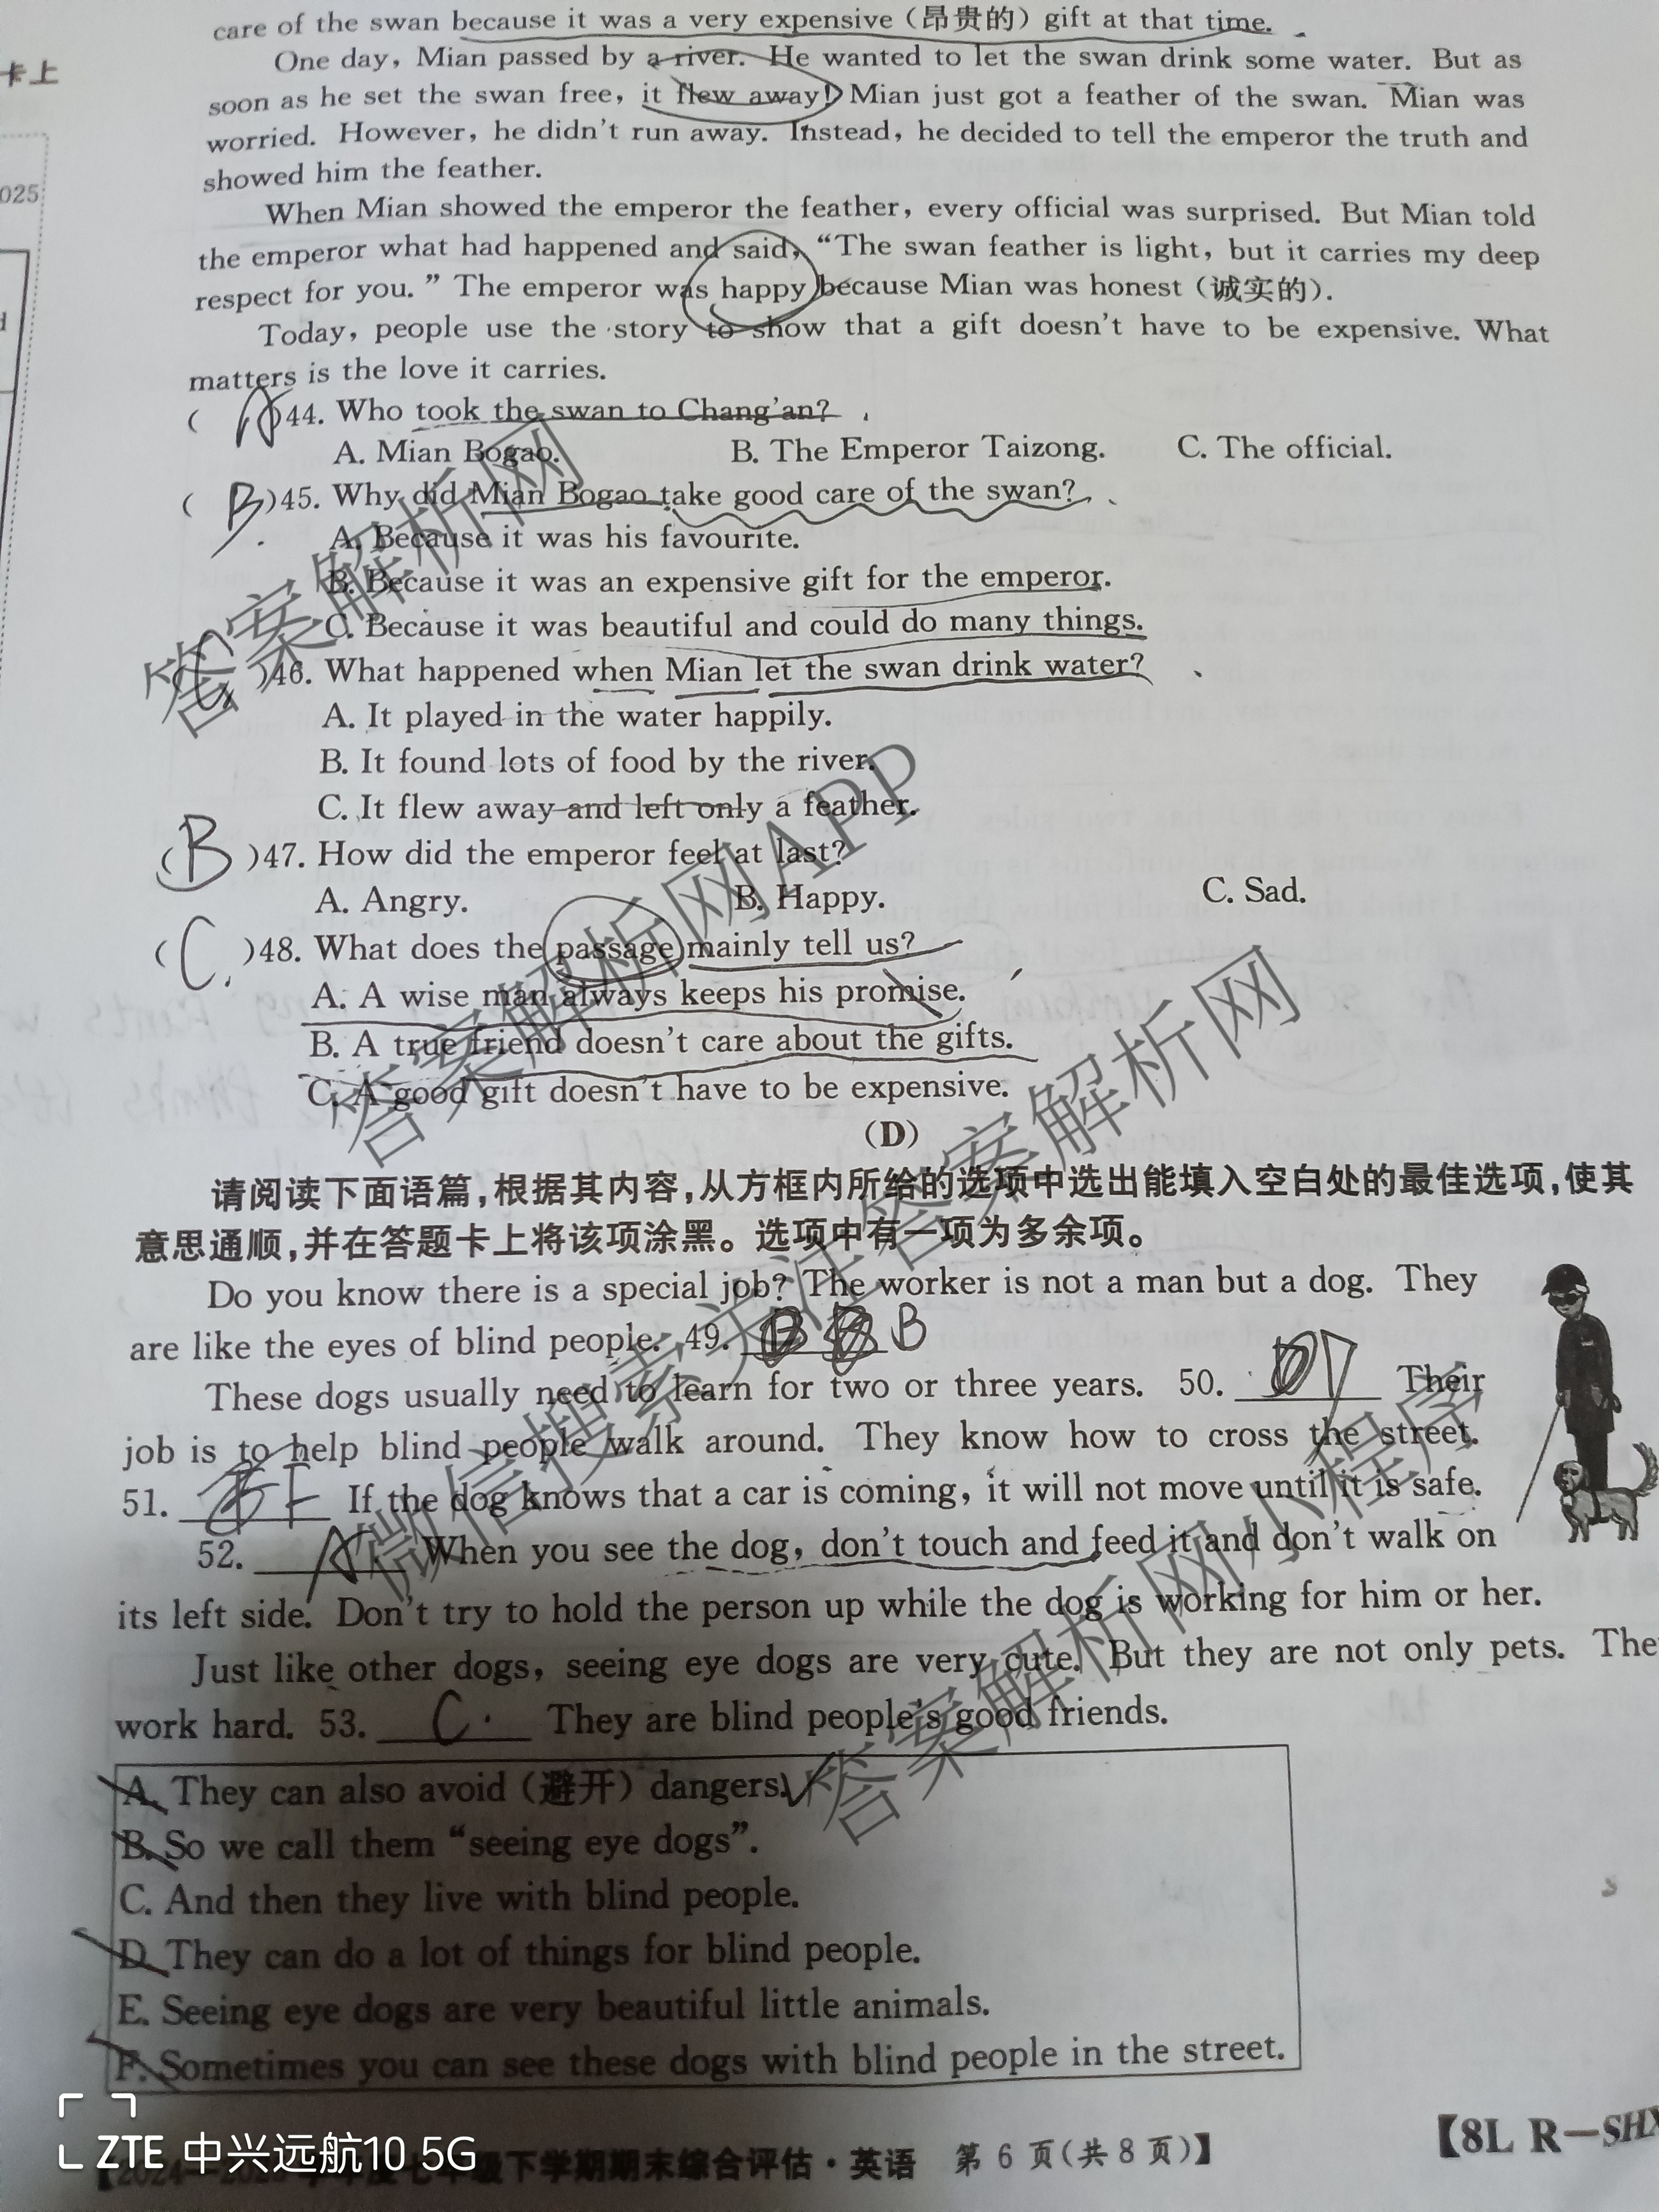 care of the swan because it was a very expensive（昂贵的）gift at that time.
卡上
One day, Mian passed by a river. He wanted to let the swan drink some water. But as
soon as he set the swan free, it flew away! Mian just got a feather of the swan. Mian was
worried. However, he didn't run away. Instead, he decided to tell the emperor the truth and
showed him the feather.
025
When Mian showed the emperor the feather, every official was surprised. But Mian told
the emperor what had happened and said, “The swan feather is light, but it carries my deep
respect for you.” The emperor was happy because Mian was honest（诚实的）.
Today, people use the story to show that a gift doesn't have to be expensive. What
matters is the love it carries.
( A )44. Who took the swan to Chang'an?
A. Mian Bogao. B. The Emperor Taizong. C. The official.
( B )45. Why did Mian Bogao take good care of the swan?
A. Because it was his favourite.
B. Because it was an expensive gift for the emperor.
C. Because it was beautiful and could do many things.
( C )46. What happened when Mian let the swan drink water?
A. It played in the water happily.
B. It found lots of food by the river.
C. It flew away and left only a feather.
( B )47. How did the emperor feel at last?
A. Angry. B. Happy. C. Sad.
( C. )48. What does the passage mainly tell us?
A. A wise man always keeps his promise.
B. A true friend doesn't care about the gifts.
C. A good gift doesn't have to be expensive.
(D)
请阅读下面语篇,根据其内容,从方框内所给的选项中选出能填入空白处的最佳选项,使其
意思通顺,并在答题卡上将该项涂黑。选项中有一项为多余项。
Do you know there is a special job? The worker is not a man but a dog. They
are like the eyes of blind people. 49. B
These dogs usually need to learn for two or three years. 50. D Their
job is to help blind people walk around. They know how to cross the street.
51. F If the dog knows that a car is coming, it will not move until it is safe.
52. A When you see the dog, don't touch and feed it and don't walk on
its left side. Don't try to hold the person up while the dog is working for him or her.
Just like other dogs, seeing eye dogs are very cute. But they are not only pets. The
work hard. 53. C. They are blind people's good friends.
A. They can also avoid（避开）dangers.
B. So we call them “seeing eye dogs”.
C. And then they live with blind people.
D. They can do a lot of things for blind people.
E. Seeing eye dogs are very beautiful little animals.
F. Sometimes you can see these dogs with blind people in the street.
ZTE 中兴远航10 5G
七年级下学期期末综合评估·英语 第6页(共8页)】
【8L R—SHX
答案解析网
答案解析网APP
微信搜索关注答案解析网
答案解析网小程序